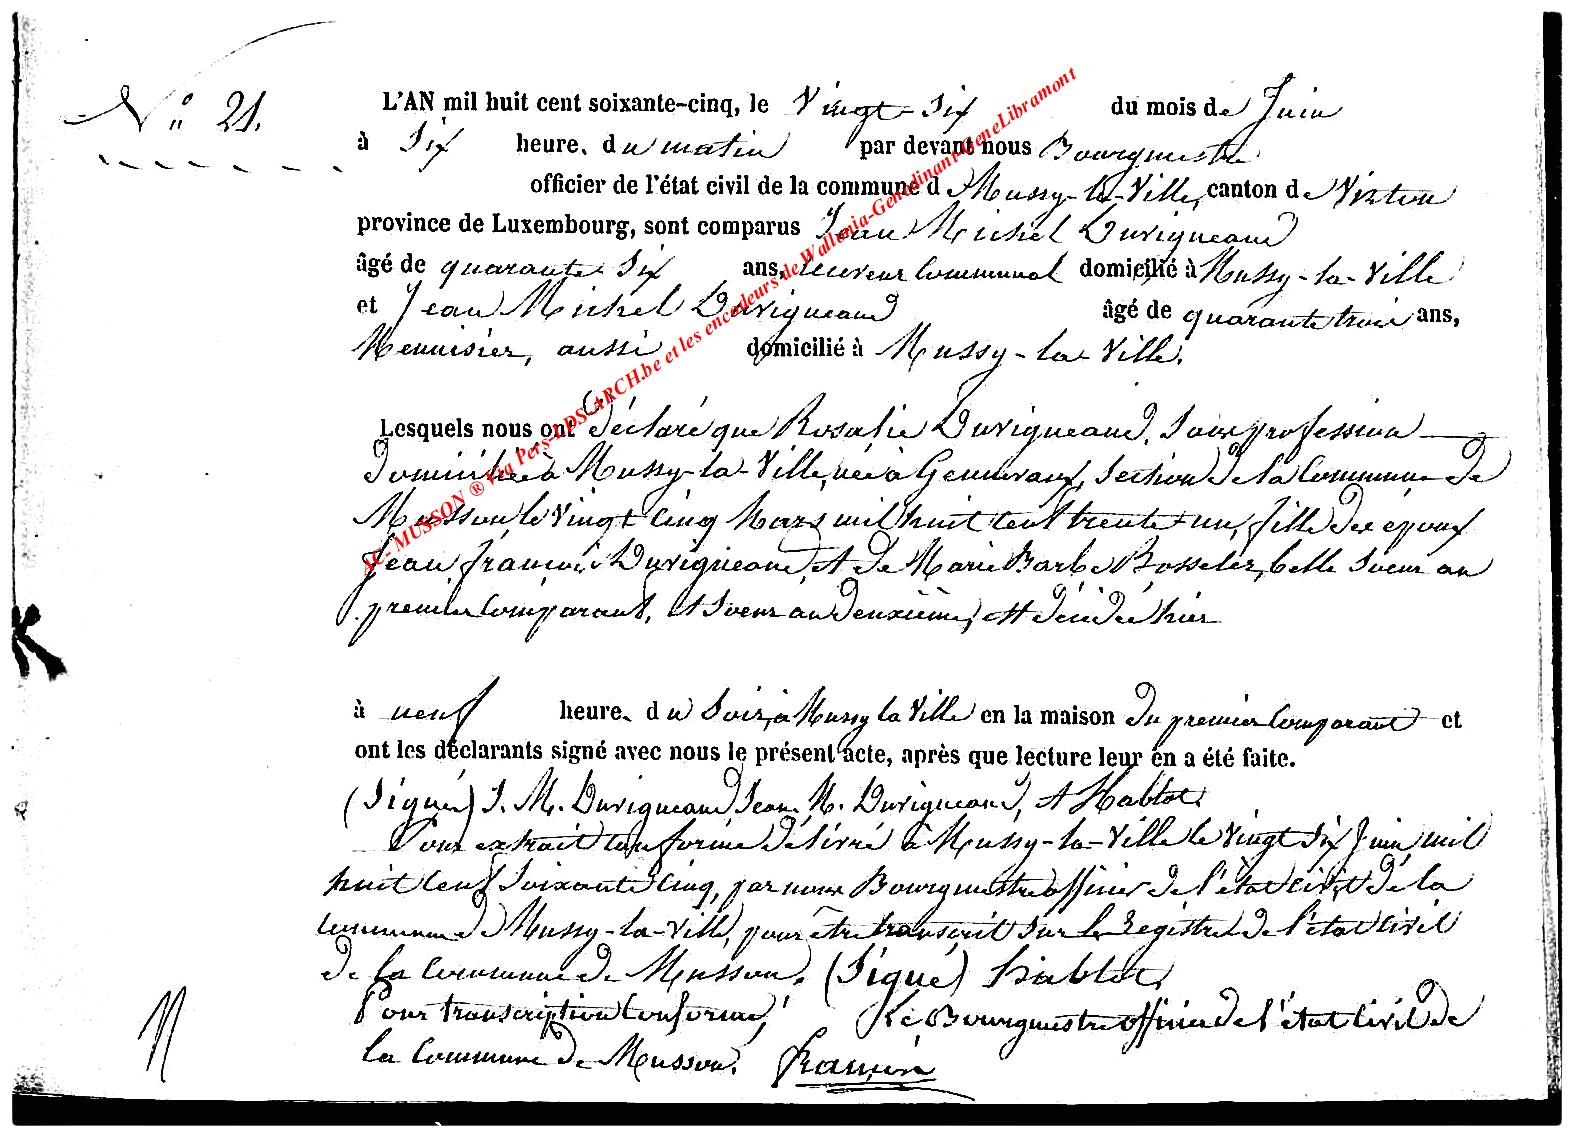 N° 21.
L'AN mil huit cent soixante-cinq, le Vingt-six du mois de Juin
à six heure. du matin par devant nous Bourgmestre
officier de l'état civil de la commune de Mussy-la-Ville, canton de Virton
province de Luxembourg, sont comparus Jean Michel Duvigneaud
âgé de quarante six ans, receveur Communal domicilié à Mussy-la-Ville
et Jean Michel Duvigneaud âgé de quarante trois ans,
Menuisier, aussi domicilié à Mussy-la-Ville.
Lesquels nous ont déclaré que Rosalie Duvigneaud, sans profession
domiciliée à Mussy-la-Ville, née à Gennevaux, section de la Commune de
Musson le vingt cinq Mars mil huit cent trente-un, fille des époux
Jean François Duvigneaud, et de Marie Barbe Bosseler, belle soeur au
premier Comparant, et soeur au deuxième, est décédée hier
à neuf heure. du Soir, à Mussy la Ville en la maison du premier Comparant et
ont les déclarants signé avec nous le présent acte, après que lecture leur en a été faite.
(Signé) J. M. Duvigneaud, Jean M. Duvigneaud, et Hablot.
Pour extrait conforme délivré à Mussy-la-Ville le vingt six Juin mil
huit cent soixante cinq, par nous Bourgmestre officier de l'état civil de la
commune de Mussy-la-Ville, pour être transcrit sur le registre de l'état civil
de la Commune de Musson. (Signé) Hablot.
Pour transcription conforme, Le Bourgmestre officier de l'état civil de
la Commune de Musson.
JC- MUSSON ® via Pers-LDS-ARCH.be et les encodeurs de Wallonia-Genedinant-GeneLibramont